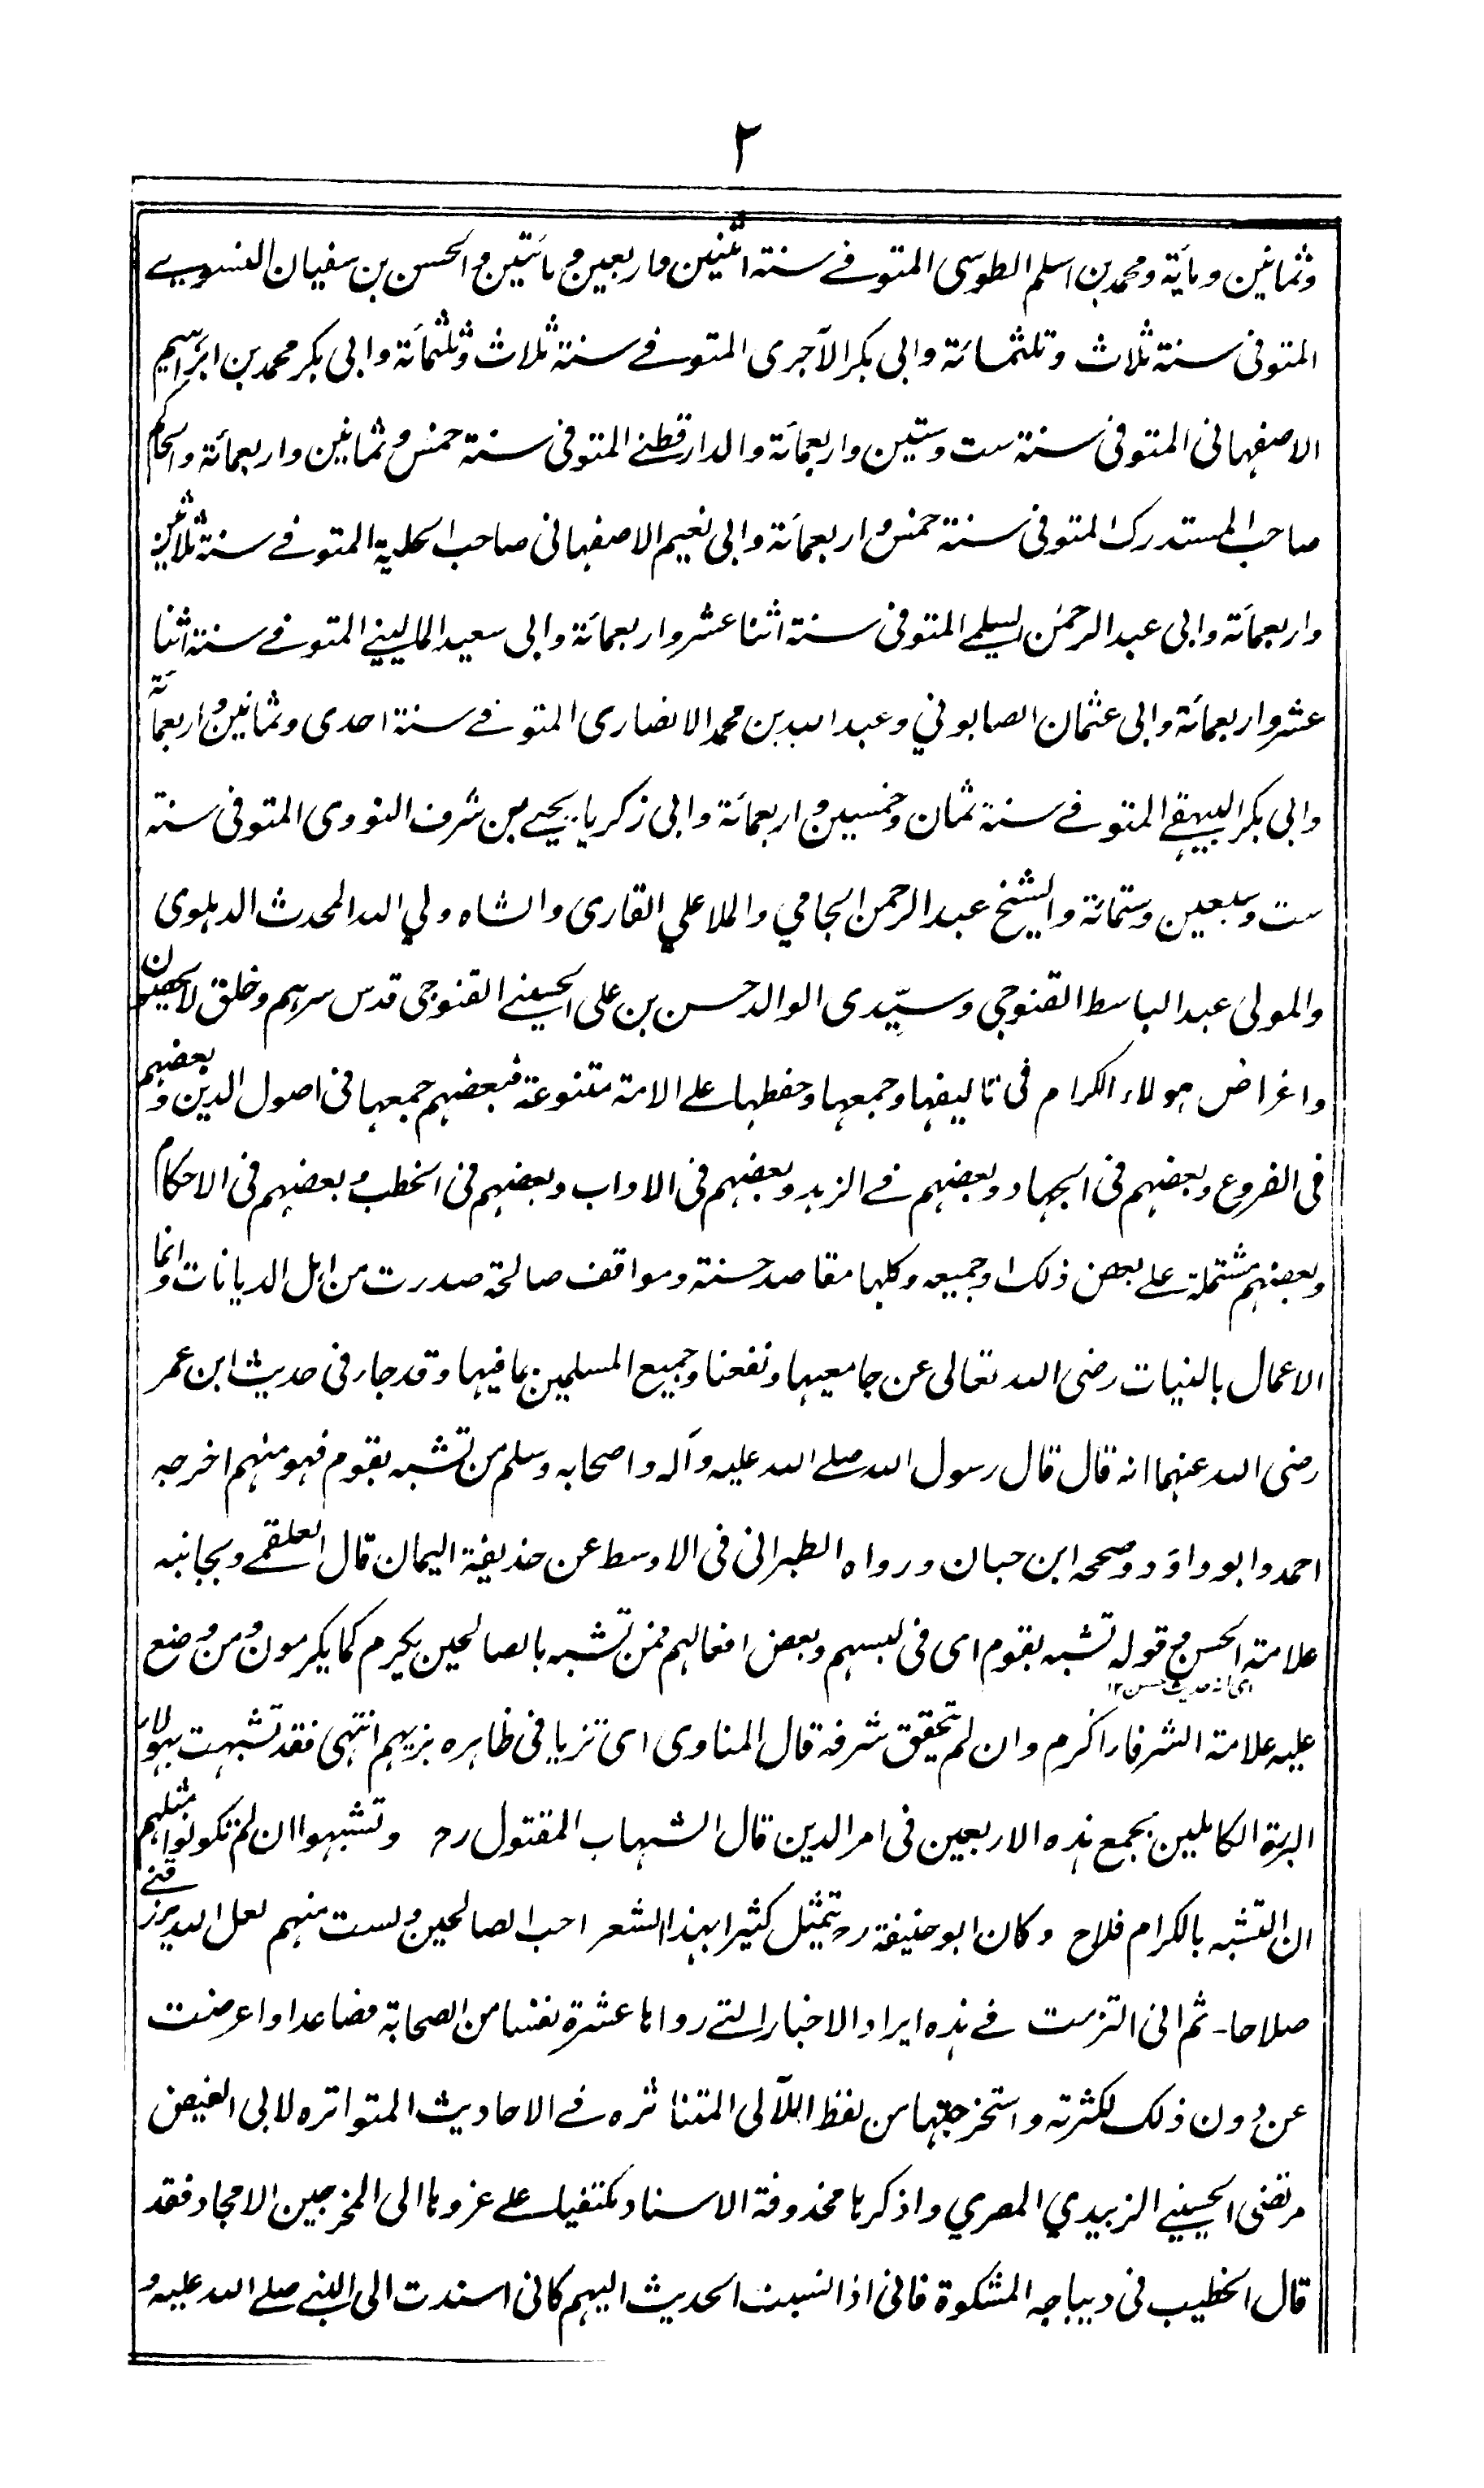 ٢
وثمانين ومائة ومحمد بن اسلم الطوسى المتوفے سنة اثنين واربعين ومائتين والحسن بن سفيان النسوىے
المتوفى سنة ثلاث وثلثمائة وابى بكر الآجرى المتوفے سنة ثلاث وثلثمائة وابى بكر محمد بن ابراہيم
الاصفہانى المتوفى سنة ست وستين واربعمائة والدارقطنے المتوفى سنة خمس وثمانين واربعمائة والحاكم
صاحب المستدرك المتوفى سنة خمس واربعمائة وابى نعيم الاصفہانى صاحب الحلية المتوفے سنة ثلاثين
واربعمائة وابى عبد الرحمٰن السلمے المتوفى سنة اثنا عشر واربعمائة وابى سعيد المالينے المتوفے سنة اثنا
عشر واربعمائة وابى عثمان الصابوني وعبد الله بن محمد الانصارى المتوفے سنة احدى وثمانين واربعمائة
وابى بكر البيہقے المتوفے سنة ثمان وخمسين واربعمائة وابى زكريا يحيے بن شرف النووى المتوفى سنة
ست وسبعين وستمائة والشيخ عبد الرحمن الجامي والملا علي القارى والشاه ولي الله المحدث الدہلوى
والمولىٰ عبد الباسط القنوجي وسيّدى الوالد حسن بن على الحسينے القنوجى قدس سرہم وخلق لا يحصون
واغراض ہولاء الكرام فى تاليفہا وجمعہا وحفظہا علے الامة متنوعة فبعضہم جمعہا فى اصول الدين وبعضہم
فى الفروع وبعضہم فى الجہاد وبعضہم فے الزہد وبعضہم فى الاداب وبعضہم فى الخطب وبعضہم فى الاحكام
وبعضہم مشتملة علے بعض ذلك او جميعه وكلہا مقاصد حسنة ومواقف صالحة صدرت من اہل الديانات وانما
الاعمال بالنيات رضى الله تعالى عن جامعيہا ونفعنا وجميع المسلمين بما فيہا وقد جاء فى حديث ابن عمر
رضى الله عنہما انه قال قال رسول الله صلے الله عليه وآله واصحابه وسلم من تشبه بقوم فہو منہم اخرجه
احمد وابو داؤد وصححه ابن حبان ورواه الطبرانى فى الاوسط عن حذيفة اليمان قال العلقمے وبجانبه
علامة الحسن مع قوله تشبه بقوم اى فى لبسہم وبعض افعالہم فمن تشبه بالصالحين يكرم كما يكرمون ومن وضع
اى انه حديث حسن ١٢
عليه علامة الشرفاء اكرم وان لم يتحقق شرفه قال المناوى اى تزيا فى ظاہره بزيہم انتہى فقد تشبہت بہولاء
البررة الكاملين بجمع ہذه الاربعين فى امر الدين قال الشہاب المقتول رح وتشبہوا ان لم تكونوا مثلہم
ان التشبه بالكرام فلاح وكان ابو حنيفة رح يتمثل كثيرا بہذا الشعر احب الصالحين ولست منہم لعل الله يرزقنے
صلاحا۔ ثم انى التزمت فے ہذه ايراد الاخبار التے رواہا عشرة نفسا من الصحابة فصاعدا واعرضت
عن دون ذلك لكثرته واستخرجتہا من لفظ اللآلى المتناثره فے الاحاديث المتواتره لابى الفيض
مرتضى الحسينے الزبيدي المصري واذكرہا محذوفة الاسناد مكتفيا علے عزوہا الى المخرجين الامجاد فقد
قال الخطيب فى ديباجه المشكوة فانى اذا نسبت الحديث اليہم كانى اسندت الى النبے صلے الله عليه و